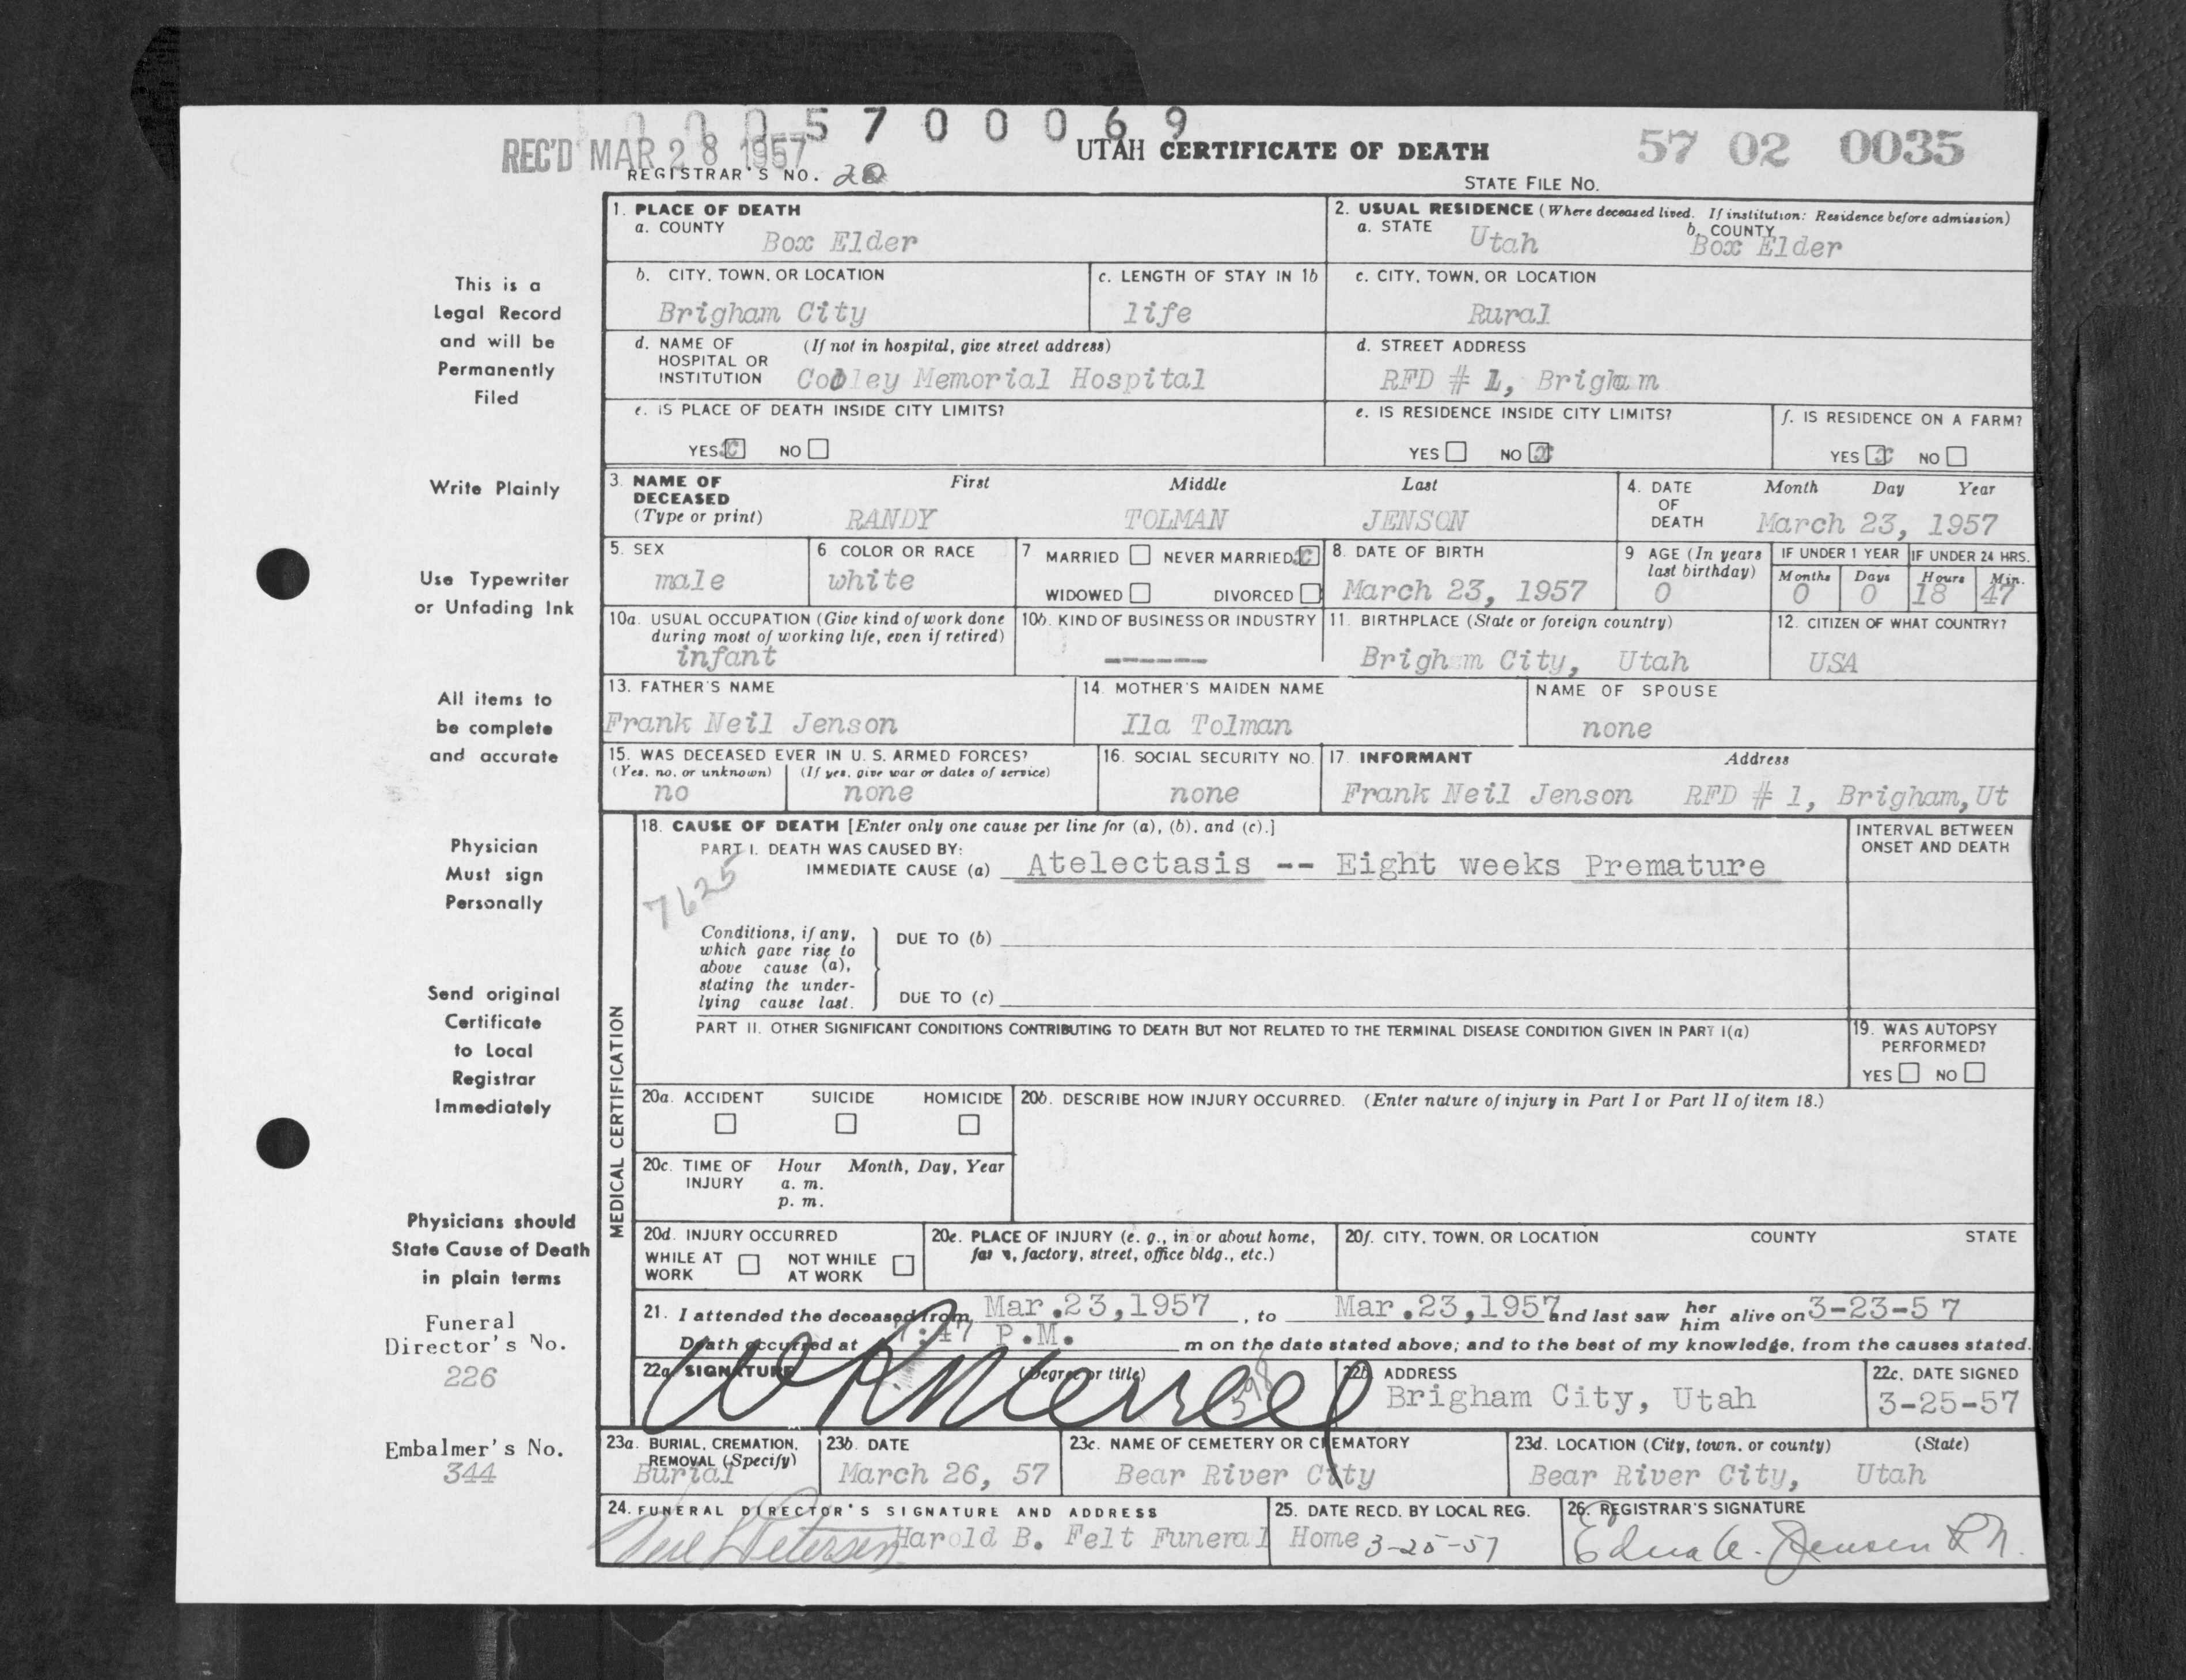 0 0 0 5 7 0 0 0 6 9
REC'D MAR 28 1957
UTAH CERTIFICATE OF DEATH
57 02 0035
REGISTRAR'S NO. 20
STATE FILE NO.
This is a
Legal Record
and will be
Permanently
Filed
Write Plainly
Use Typewriter
or Unfading Ink
All items to
be complete
and accurate
Physician
Must sign
Personally
Send original
Certificate
to Local
Registrar
Immediately
Physicians should
State Cause of Death
in plain terms
Funeral
Director's No.
226
Embalmer's No.
344
1. PLACE OF DEATH
a. COUNTY Box Elder
2. USUAL RESIDENCE (Where deceased lived. If institution: Residence before admission)
a. STATE Utah b. COUNTY Box Elder
b. CITY, TOWN, OR LOCATION
Brigham City
c. LENGTH OF STAY IN 1b
life
c. CITY, TOWN, OR LOCATION
Rural
d. NAME OF (If not in hospital, give street address)
HOSPITAL OR
INSTITUTION Cooley Memorial Hospital
d. STREET ADDRESS
RFD # 1, Brigham
e. IS PLACE OF DEATH INSIDE CITY LIMITS?
YES x NO
e. IS RESIDENCE INSIDE CITY LIMITS?
YES NO x
f. IS RESIDENCE ON A FARM?
YES x NO
3. NAME OF
DECEASED
(Type or print)
First Middle Last
RANDY TOLMAN JENSON
4. DATE
OF
DEATH
Month Day Year
March 23, 1957
5. SEX
male
6. COLOR OR RACE
white
7 MARRIED NEVER MARRIED x
WIDOWED DIVORCED
8. DATE OF BIRTH
March 23, 1957
9 AGE (In years
last birthday)
0
IF UNDER 1 YEAR IF UNDER 24 HRS.
Months Days Hours Min.
0 0 18 47
10a. USUAL OCCUPATION (Give kind of work done
during most of working life, even if retired)
infant
10b. KIND OF BUSINESS OR INDUSTRY
------
11. BIRTHPLACE (State or foreign country)
Brigham City, Utah
12. CITIZEN OF WHAT COUNTRY?
USA
13. FATHER'S NAME
Frank Neil Jenson
14. MOTHER'S MAIDEN NAME
Ila Tolman
NAME OF SPOUSE
none
15. WAS DECEASED EVER IN U. S. ARMED FORCES?
(Yes, no, or unknown) (If yes, give war or dates of service)
no none
16. SOCIAL SECURITY NO.
none
17. INFORMANT Address
Frank Neil Jenson RFD # 1, Brigham, Ut
MEDICAL CERTIFICATION
18. CAUSE OF DEATH [Enter only one cause per line for (a), (b), and (c).]
PART I. DEATH WAS CAUSED BY:
IMMEDIATE CAUSE (a) Atelectasis -- Eight weeks Premature
7625
INTERVAL BETWEEN
ONSET AND DEATH
Conditions, if any,
which gave rise to
above cause (a),
stating the under-
lying cause last.
DUE TO (b)
DUE TO (c)
PART II. OTHER SIGNIFICANT CONDITIONS CONTRIBUTING TO DEATH BUT NOT RELATED TO THE TERMINAL DISEASE CONDITION GIVEN IN PART I(a)
19. WAS AUTOPSY
PERFORMED?
YES NO
20a. ACCIDENT SUICIDE HOMICIDE
20b. DESCRIBE HOW INJURY OCCURRED. (Enter nature of injury in Part I or Part II of item 18.)
20c. TIME OF Hour Month, Day, Year
INJURY a. m.
p. m.
20d. INJURY OCCURRED
WHILE AT NOT WHILE
WORK AT WORK
20e. PLACE OF INJURY (e. g., in or about home,
farm, factory, street, office bldg., etc.)
20f. CITY, TOWN, OR LOCATION COUNTY STATE
21. I attended the deceased from Mar.23,1957, to Mar.23,1957 and last saw her him alive on 3-23-57
Death occurred at 7:47 P.M. m on the date stated above; and to the best of my knowledge, from the causes stated.
22a. SIGNATURE (Degree or title)
W R Merrell
22b. ADDRESS
Brigham City, Utah
22c. DATE SIGNED
3-25-57
23a. BURIAL, CREMATION,
REMOVAL (Specify)
Burial
23b. DATE
March 26, 57
23c. NAME OF CEMETERY OR CREMATORY
Bear River City
23d. LOCATION (City, town, or county) (State)
Bear River City, Utah
24. FUNERAL DIRECTOR'S SIGNATURE AND ADDRESS
Petersen Harold B. Felt Funeral Home
25. DATE RECD. BY LOCAL REG.
3-25-57
26. REGISTRAR'S SIGNATURE
Edna A. Jensen R N.